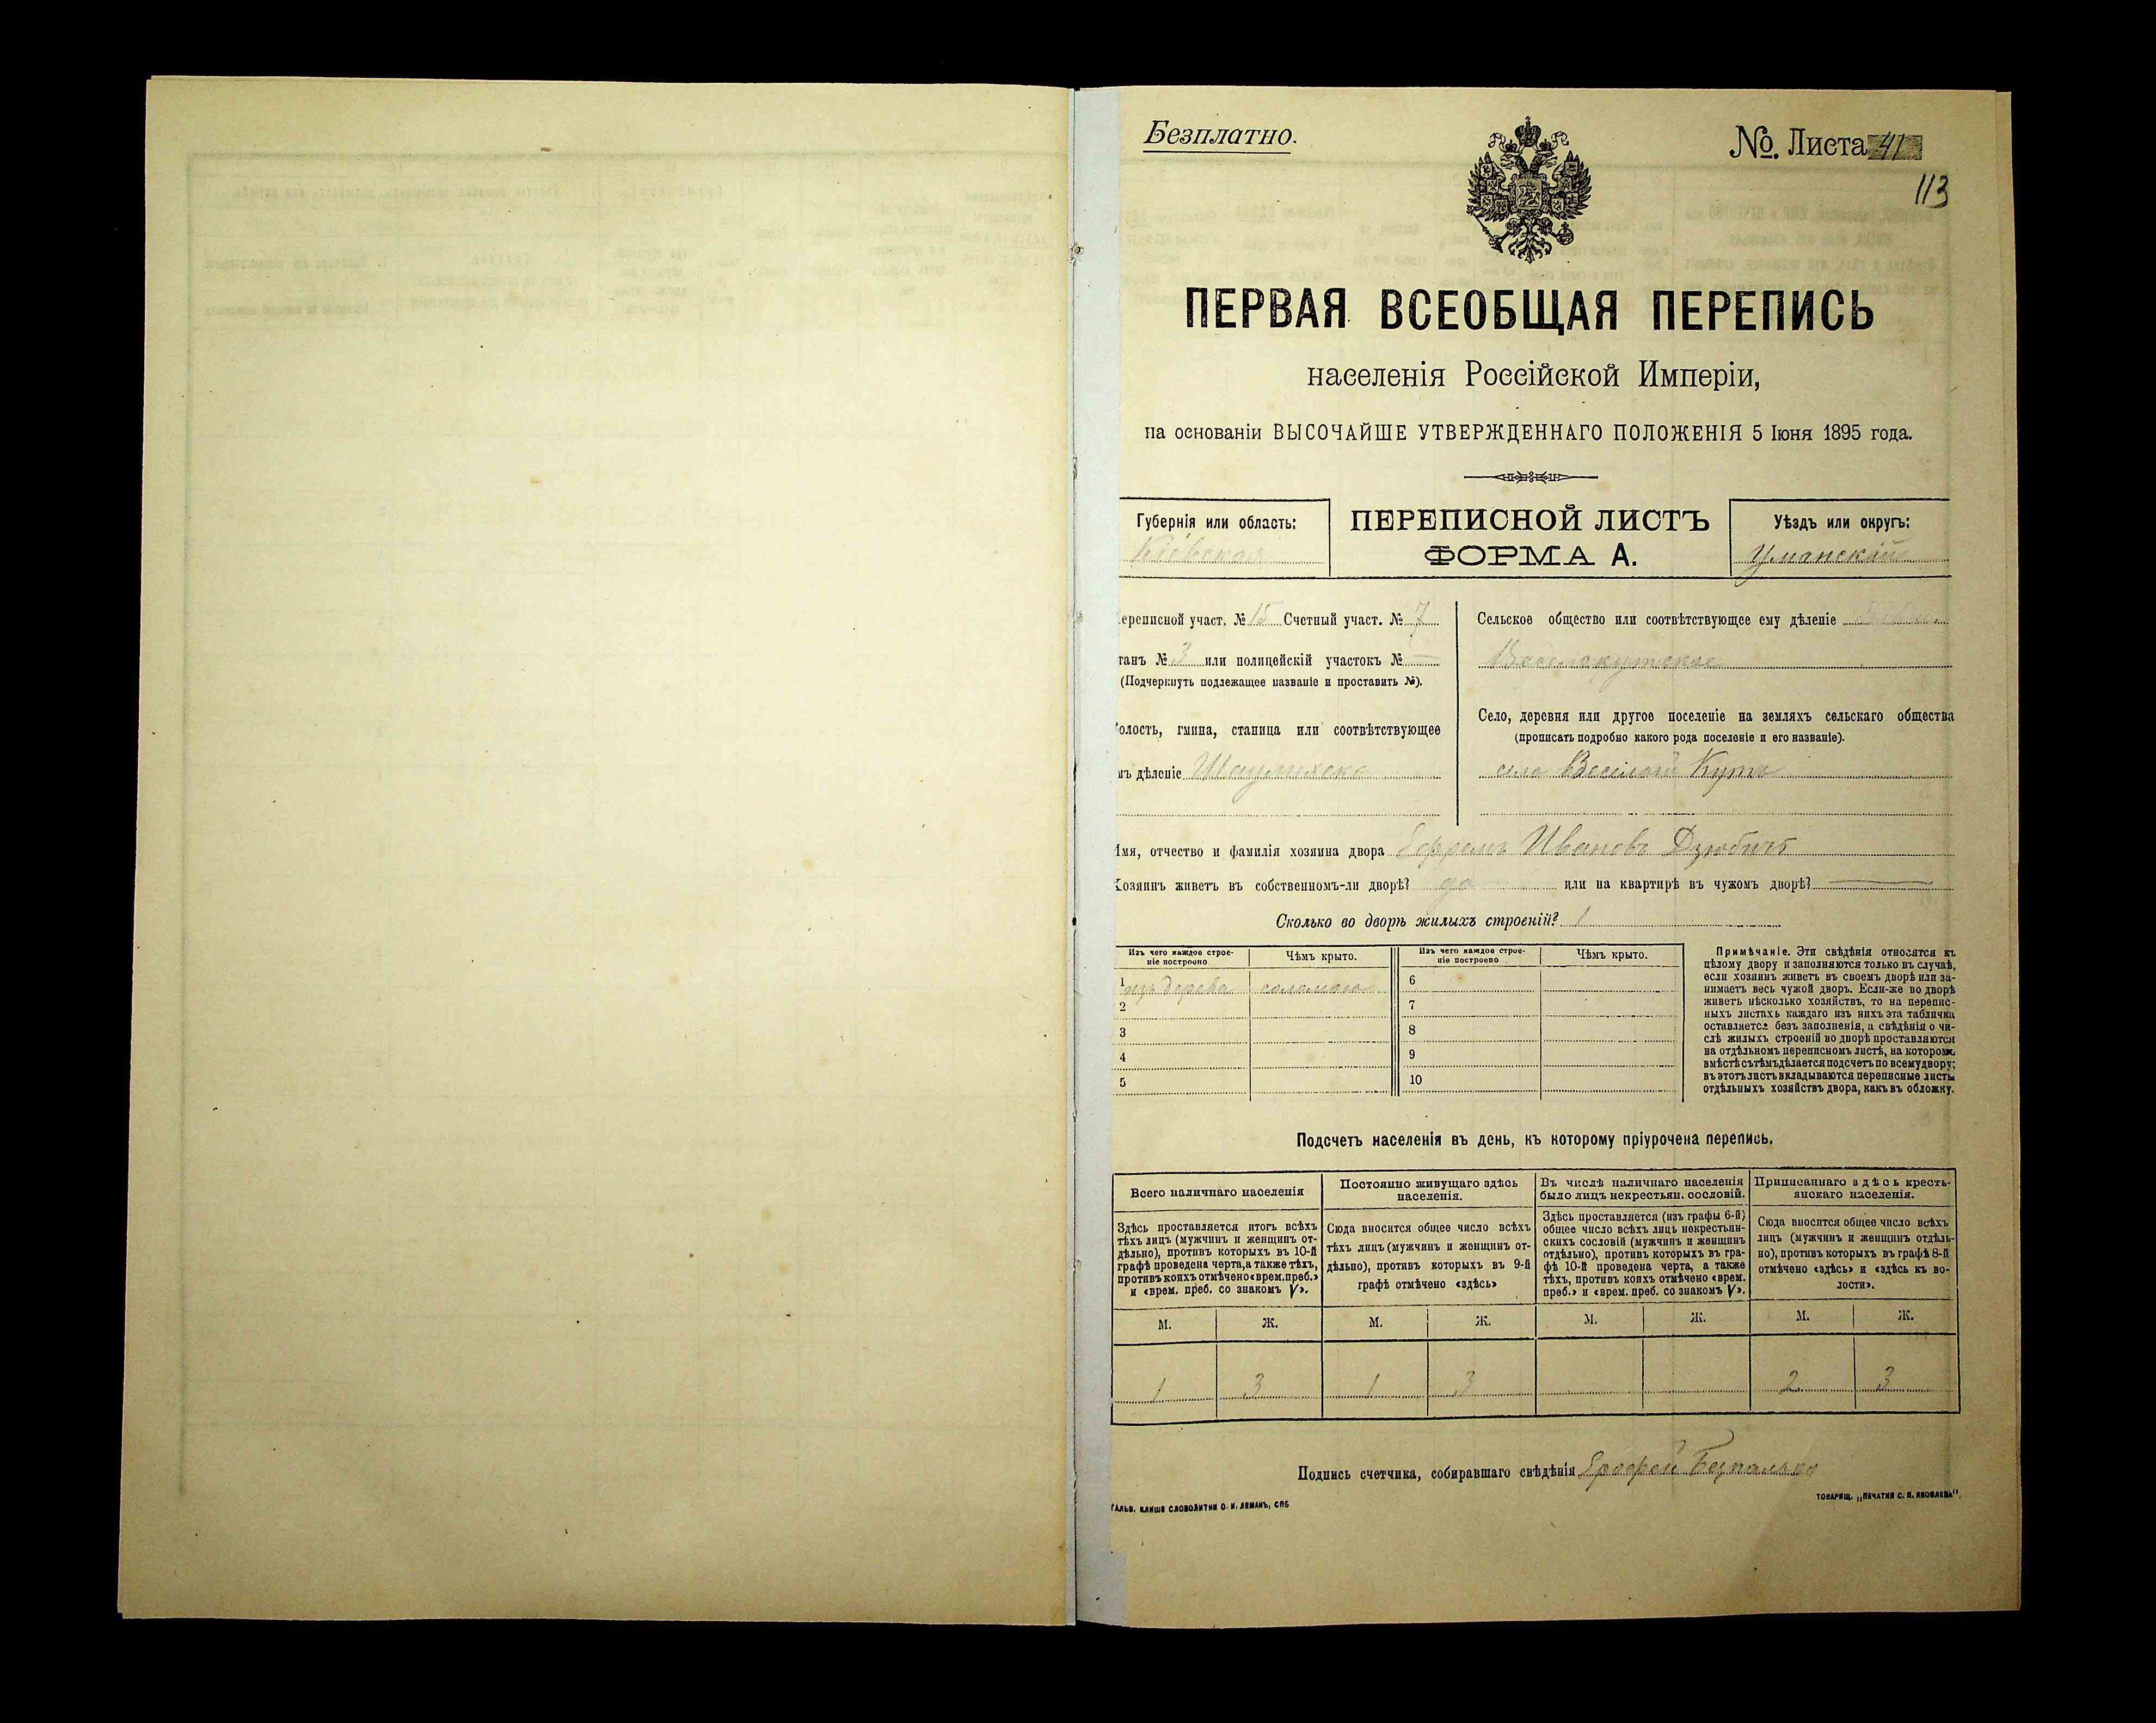 Безплатно.
№. Листа 41
113
ПЕРВАЯ ВСЕОБЩАЯ ПЕРЕПИСЬ
населенія Россійской Имперіи,
на основаніи ВЫСОЧАЙШЕ УТВЕРЖДЕННАГО ПОЛОЖЕНІЯ 5 Іюня 1895 года.
Губернія или область:
Кіевская
ПЕРЕПИСНОЙ ЛИСТЪ
ФОРМА А.
Уѣздъ или округъ:
Уманскій
ереписной участ. № 15 Счетный участ. № 7
танъ № 3 или полицейскій участокъ № —
(Подчеркнуть подлежащее названіе и проставить №).
олость, гмина, станица или соотвѣтствующее
мъ дѣленіе
Сельское общество или соотвѣтствующее ему дѣленіе
Веселокутское
Село, деревня или другое поселеніе на земляхъ сельскаго общества
(прописать подробно какого рода поселеніе и его названіе).
село Веселый Кутъ
Имя, отчество и фамилія хозяина двора Иванов
Хозяинъ живетъ въ собственномъ-ли дворѣ? да или на квартирѣ въ чужомъ дворѣ? —
Сколько во дворѣ жилыхъ строеній? 1
Изъ чего каждое строе-
ніе построено
Чѣмъ крыто.
1 изъ дерева соломою
2
3
4
5
Изъ чего каждое строе-
ніе построено
Чѣмъ крыто.
6
7
8
9
10
Примѣчаніе. Эти свѣдѣнія относятся къ
цѣлому двору и заполняются только въ случаѣ,
если хозяинъ живетъ въ своемъ дворѣ или за-
нимаетъ весь чужой дворъ. Если-же во дворѣ
живетъ нѣсколько хозяйствъ, то на перепис-
ныхъ листахъ каждаго изъ нихъ эта табличка
оставляется безъ заполненія, а свѣдѣнія о чи-
слѣ жилыхъ строеній во дворѣ проставляются
на отдѣльномъ переписномъ листѣ, на которомъ
вмѣстѣ съ тѣмъ дѣлается подсчетъ по всему двору;
въ этотъ листъ вкладываются переписные листы
отдѣльныхъ хозяйствъ двора, какъ въ обложку.
Подсчетъ населенія въ день, къ которому пріурочена перепись.
Всего наличнаго населенія
Здѣсь проставляется итогъ всѣхъ
тѣхъ лицъ (мужчинъ и женщинъ от-
дѣльно), противъ которыхъ въ 10-й
графѣ проведена черта, а также тѣхъ,
противъ коихъ отмѣчено «врем. преб.»
и «врем. преб. со знакомъ V».
Постоянно живущаго здѣсь
населенія.
Сюда вносится общее число всѣхъ
тѣхъ лицъ (мужчинъ и женщинъ от-
дѣльно), противъ которыхъ въ 9-й
графѣ отмѣчено «здѣсь»
Въ числѣ наличнаго населенія
было лицъ некрестьян. сословій.
Здѣсь проставляется (изъ графы 6-й)
общее число всѣхъ лицъ некрестьян-
скихъ сословій (мужчинъ и женщинъ
отдѣльно), противъ которыхъ въ гра-
фѣ 10-й проведена черта, а также
тѣхъ, противъ коихъ отмѣчено «врем.
преб.» и «врем. преб. со знакомъ V».
Приписаннаго здѣсь кресть-
янскаго населенія.
Сюда вносится общее число всѣхъ
лицъ (мужчинъ и женщинъ отдѣль-
но), противъ которыхъ въ графѣ 8-й
отмѣчено «здѣсь» и «здѣсь къ во-
лости».
М. Ж. М. Ж. М. Ж. М. Ж.
1 3 1 3 2 3
Подпись счетчика, собиравшаго свѣдѣнія
ГАЛЬВ. КЛИШЕ СЛОВОЛИТНИ О. И. ЛЕМАНЪ, СПБ
ТОВАРИЩ. „ПЕЧАТНЯ С. П. ЯКОВЛЕВА".